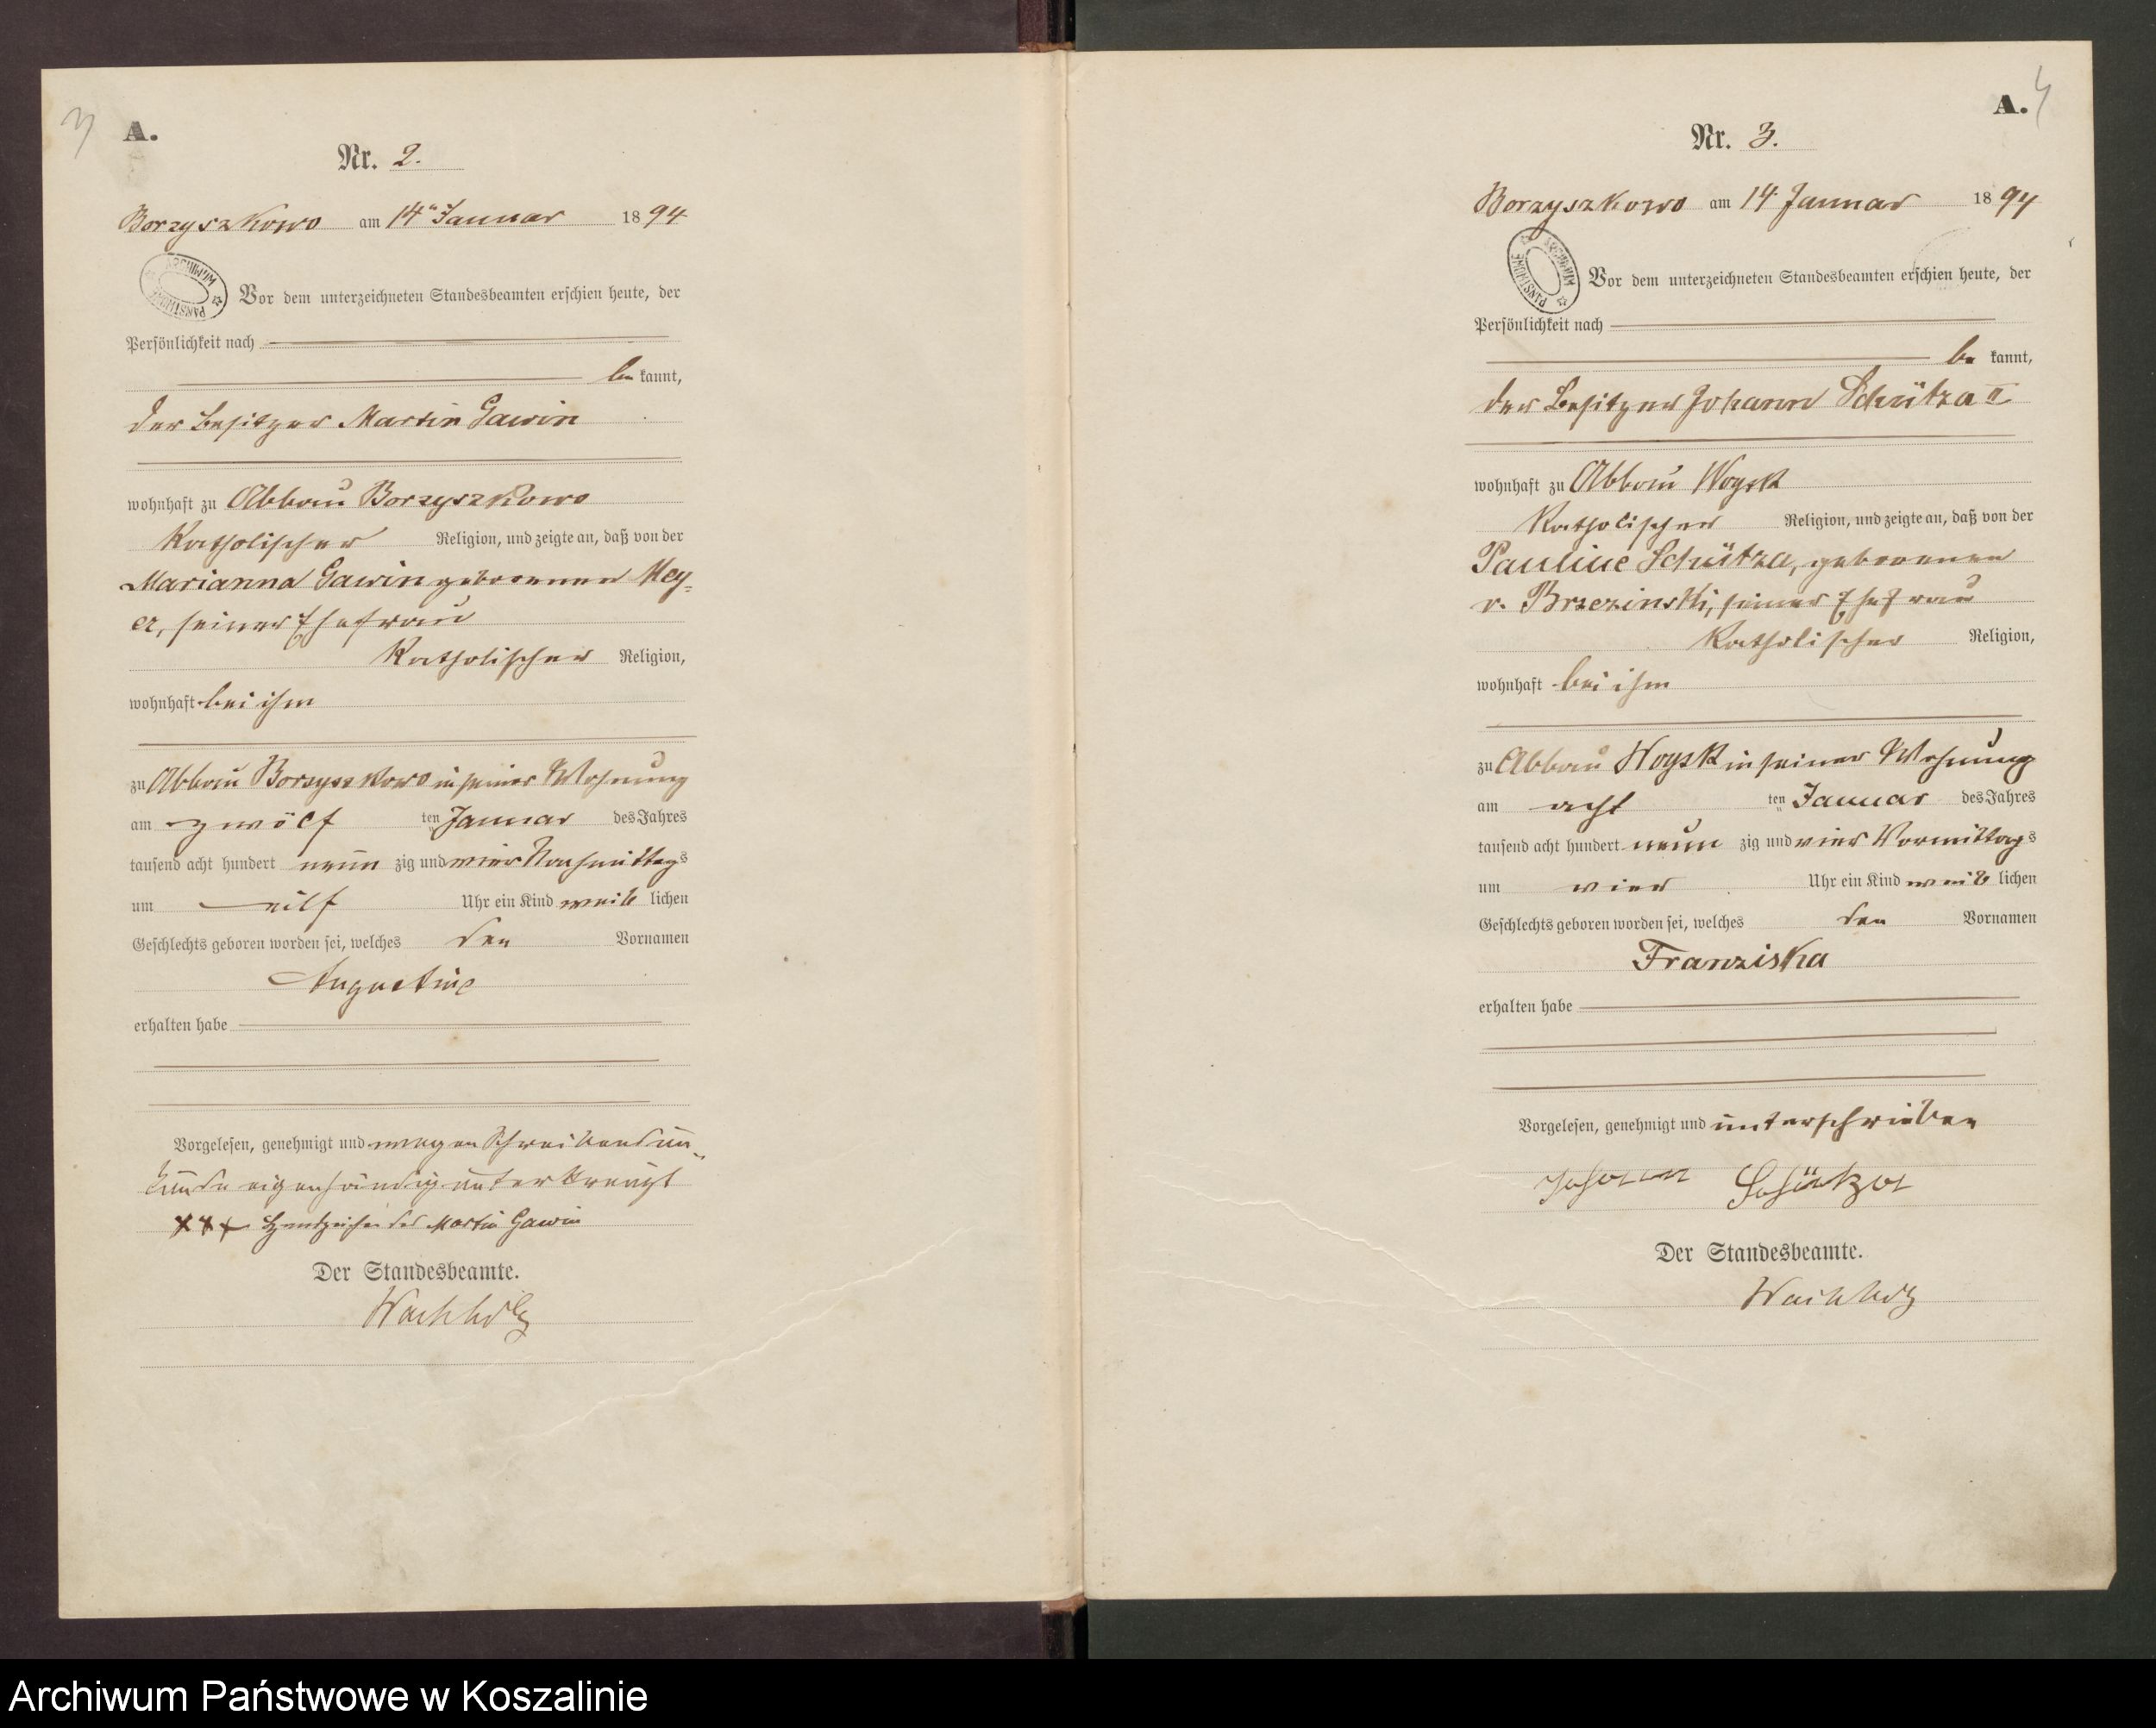 3
A.
Nr. 2.
Borzyszkowo am 14ten Januar 1894
ARCHIWUM PAŃSTWOWE
Vor dem unterzeichneten Standesbeamten erschien heute, der
Persönlichkeit nach
be kannt,
der Besitzer Martin Gawin
wohnhaft zu Abbau Borzyszkowo
Katholischer Religion, und zeigte an, daß von der
Marianna Gawin geborenen Mey=
er, seiner Ehefrau
Katholischer Religion,
wohnhaft bei ihm
zu Abbau Borzyszkowo in seiner Wohnung
am zwölf ten Januar des Jahres
tausend acht hundert neun zig und vier Nachmittags
um eilf Uhr ein Kind weib lichen
Geschlechts geboren worden sei, welches den Vornamen
Augustine
erhalten habe
Vorgelesen, genehmigt und wegen Schreibensun-
kunde eigenhändig unterkreuzt
xxx Handzeichen des Martin Gawin
Der Standesbeamte.
Wachholz
A. 4
Nr. 3.
Borzyszkowo am 14. Januar 1894
ARCHIWUM PAŃSTWOWE
Vor dem unterzeichneten Standesbeamten erschien heute, der
Persönlichkeit nach
be kannt,
der Besitzer Johann Schütza II
wohnhaft zu Abbau Woysk
Katholischer Religion, und zeigte an, daß von der
Pauline Schütza, geborenen
v. Brzezinski, seiner Ehefrau
Katholischer Religion,
wohnhaft bei ihm
zu Abbau Woysk in seiner Wohnung
am acht ten Januar des Jahres
tausend acht hundert neun zig und vier Vormittags
um vier Uhr ein Kind weib lichen
Geschlechts geboren worden sei, welches den Vornamen
Franziska
erhalten habe
Vorgelesen, genehmigt und unterschrieben
Johann Schütza
Der Standesbeamte.
Wachholz
Archiwum Państwowe w Koszalinie